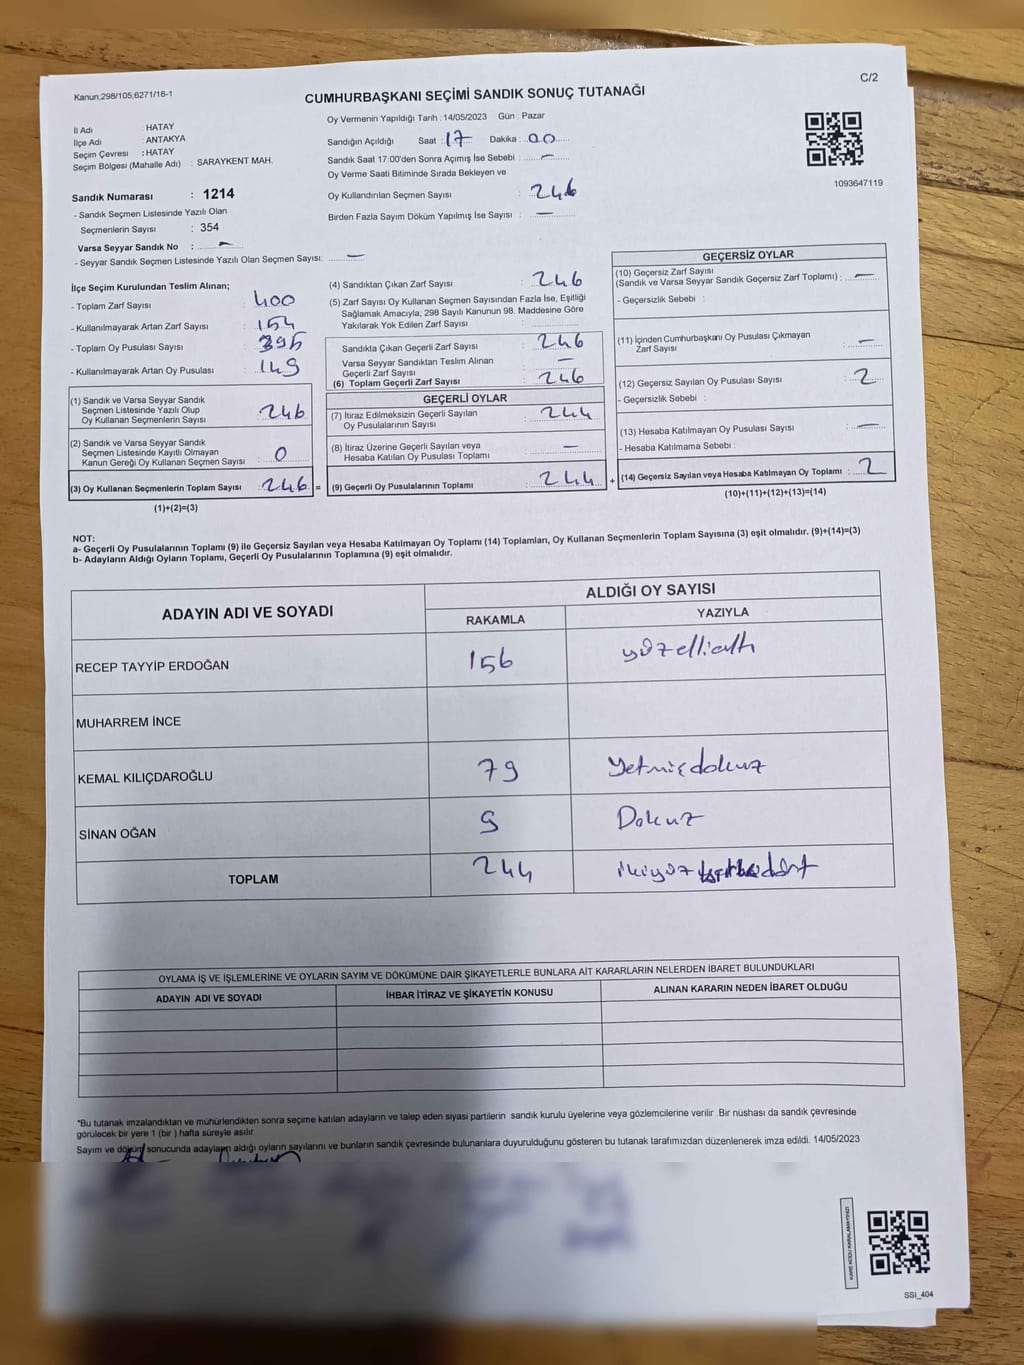 C/2
Kanun;298/105,6271/18-1
CUMHURBAŞKANI SEÇİMİ SANDIK SONUÇ TUTANAĞI
İl Adı : HATAY
İlçe Adı : ANTAKYA
Seçim Çevresi : HATAY
Seçim Bölgesi (Mahalle Adı) : SARAYKENT MAH.
Sandık Numarası : 1214
- Sandık Seçmen Listesinde Yazılı Olan
Seçmenlerin Sayısı : 354
Varsa Seyyar Sandık No : —
- Seyyar Sandık Seçmen Listesinde Yazılı Olan Seçmen Sayısı: —
Oy Vermenin Yapıldığı Tarih : 14/05/2023 Gün : Pazar
Sandığın Açıldığı Saat : 17 Dakika : 00
Sandık Saat 17:00'den Sonra Açımış İse Sebebi : —
Oy Verme Saati Bitiminde Sırada Bekleyen ve
Oy Kullandırılan Seçmen Sayısı : 246
Birden Fazla Sayım Döküm Yapılmış İse Sayısı : —
1093647119
İlçe Seçim Kurulundan Teslim Alınan;
- Toplam Zarf Sayısı : 400
- Kullanılmayarak Artan Zarf Sayısı : 154
- Toplam Oy Pusulası Sayısı : 395
- Kullanılmayarak Artan Oy Pusulası : 149
(1) Sandık ve Varsa Seyyar Sandık
Seçmen Listesinde Yazılı Olup
Oy Kullanan Seçmenlerin Sayısı : 246
(2) Sandık ve Varsa Seyyar Sandık
Seçmen Listesinde Kayıtlı Olmayan
Kanun Gereği Oy Kullanan Seçmen Sayısı : 0
(3) Oy Kullanan Seçmenlerin Toplam Sayısı : 246 =
(1)+(2)=(3)
(4) Sandıktan Çıkan Zarf Sayısı : 246
(5) Zarf Sayısı Oy Kullanan Seçmen Sayısından Fazla İse, Eşitliği
Sağlamak Amacıyla; 298 Sayılı Kanunun 98. Maddesine Göre
Yakılarak Yok Edilen Zarf Sayısı :
Sandıkta Çıkan Geçerli Zarf Sayısı : 246
Varsa Seyyar Sandıktan Teslim Alınan
Geçerli Zarf Sayısı : —
(6) Toplam Geçerli Zarf Sayısı : 246
GEÇERLİ OYLAR
(7) İtiraz Edilmeksizin Geçerli Sayılan
Oy Pusulalarının Sayısı : 244
(8) İtiraz Üzerine Geçerli Sayılan veya
Hesaba Katılan Oy Pusulası Toplamı : —
(9) Geçerli Oy Pusulalarının Toplamı : 244 +
GEÇERSİZ OYLAR
(10) Geçersiz Zarf Sayısı
(Sandık ve Varsa Seyyar Sandık Geçersiz Zarf Toplamı) : —
- Geçersizlik Sebebi :
(11) İçinden Cumhurbaşkanı Oy Pusulası Çıkmayan
Zarf Sayısı : —
(12) Geçersiz Sayılan Oy Pusulası Sayısı : 2
- Geçersizlik Sebebi :
(13) Hesaba Katılmayan Oy Pusulası Sayısı : —
- Hesaba Katılmama Sebebi :
(14) Geçersiz Sayılan veya Hesaba Katılmayan Oy Toplamı : 2
(10)+(11)+(12)+(13)=(14)
NOT:
a- Geçerli Oy Pusulalarının Toplamı (9) ile Geçersiz Sayılan veya Hesaba Katılmayan Oy Toplamı (14) Toplamları, Oy Kullanan Seçmenlerin Toplam Sayısına (3) eşit olmalıdır. (9)+(14)=(3)
b- Adayların Aldığı Oyların Toplamı, Geçerli Oy Pusulalarının Toplamına (9) eşit olmalıdır.
ADAYIN ADI VE SOYADI
ALDIĞI OY SAYISI
RAKAMLA YAZIYLA
RECEP TAYYİP ERDOĞAN 156 yüzellialtı
MUHARREM İNCE
KEMAL KILIÇDAROĞLU 79 Yetmişdokuz
SİNAN OĞAN 9 Dokuz
TOPLAM 244 ikiyüz dört
OYLAMA İŞ VE İŞLEMLERİNE VE OYLARIN SAYIM VE DÖKÜMÜNE DAİR ŞİKAYETLERLE BUNLARA AİT KARARLARIN NELERDEN İBARET BULUNDUKLARI
ADAYIN ADI VE SOYADI İHBAR İTİRAZ VE ŞİKAYETİN KONUSU ALINAN KARARIN NEDEN İBARET OLDUĞU
*Bu tutanak imzalandıktan ve mühürlendikten sonra seçime katılan adayların ve talep eden siyasi partilerin sandık kurulu üyelerine veya gözlemcilerine verilir .Bir nüshası da sandık çevresinde
görülecek bir yere 1 (bir ) hafta süreyle asılır.
Sayım ve döküm sonucunda adayların aldığı oyların sayılarını ve bunların sandık çevresinde bulunanlara duyurulduğunu gösteren bu tutanak tarafımızdan düzenlenerek imza edildi. 14/05/2023
KARE KODU KARALAMAYINIZ!
SSI_404